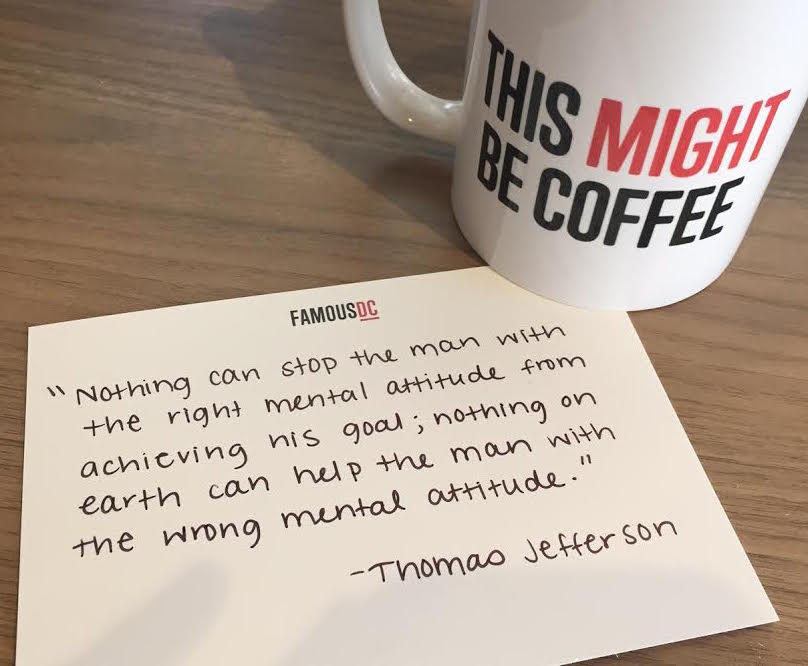 THIS MIGHT
BE COFFEE
FAMOUSDC
"Nothing can stop the man with
the right mental attitude from
achieving his goal; nothing on
earth can help the man with
the wrong mental attitude."
-Thomas Jefferson